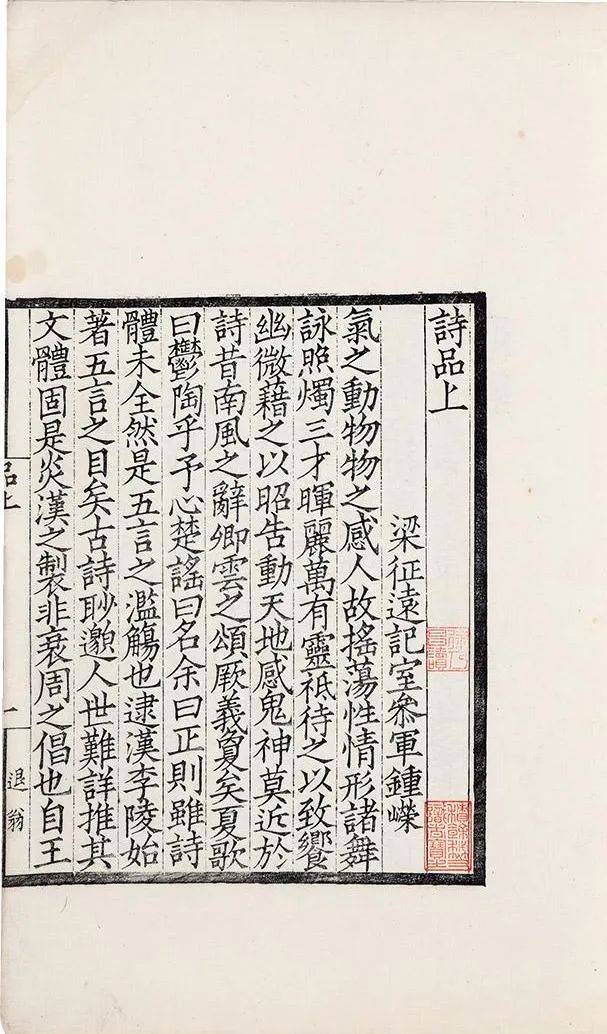 詩品上
梁征遠記室叅軍鍾嶸
氣之動物物之感人故搖蕩性情形諸舞
詠照燭三才暉麗萬有靈祇待之以致饗
幽微藉之以昭告動天地感鬼神莫近於
詩昔南風之辭卿雲之頌厥義敻矣夏歌
曰鬱陶乎予心楚謠曰名余曰正則雖詩
體未全然是五言之濫觴也逮漢李陵始
著五言之目矣古詩眇邈人世難詳推其
文體固是炎漢之製非衰周之倡也自王
品上
一
退翁